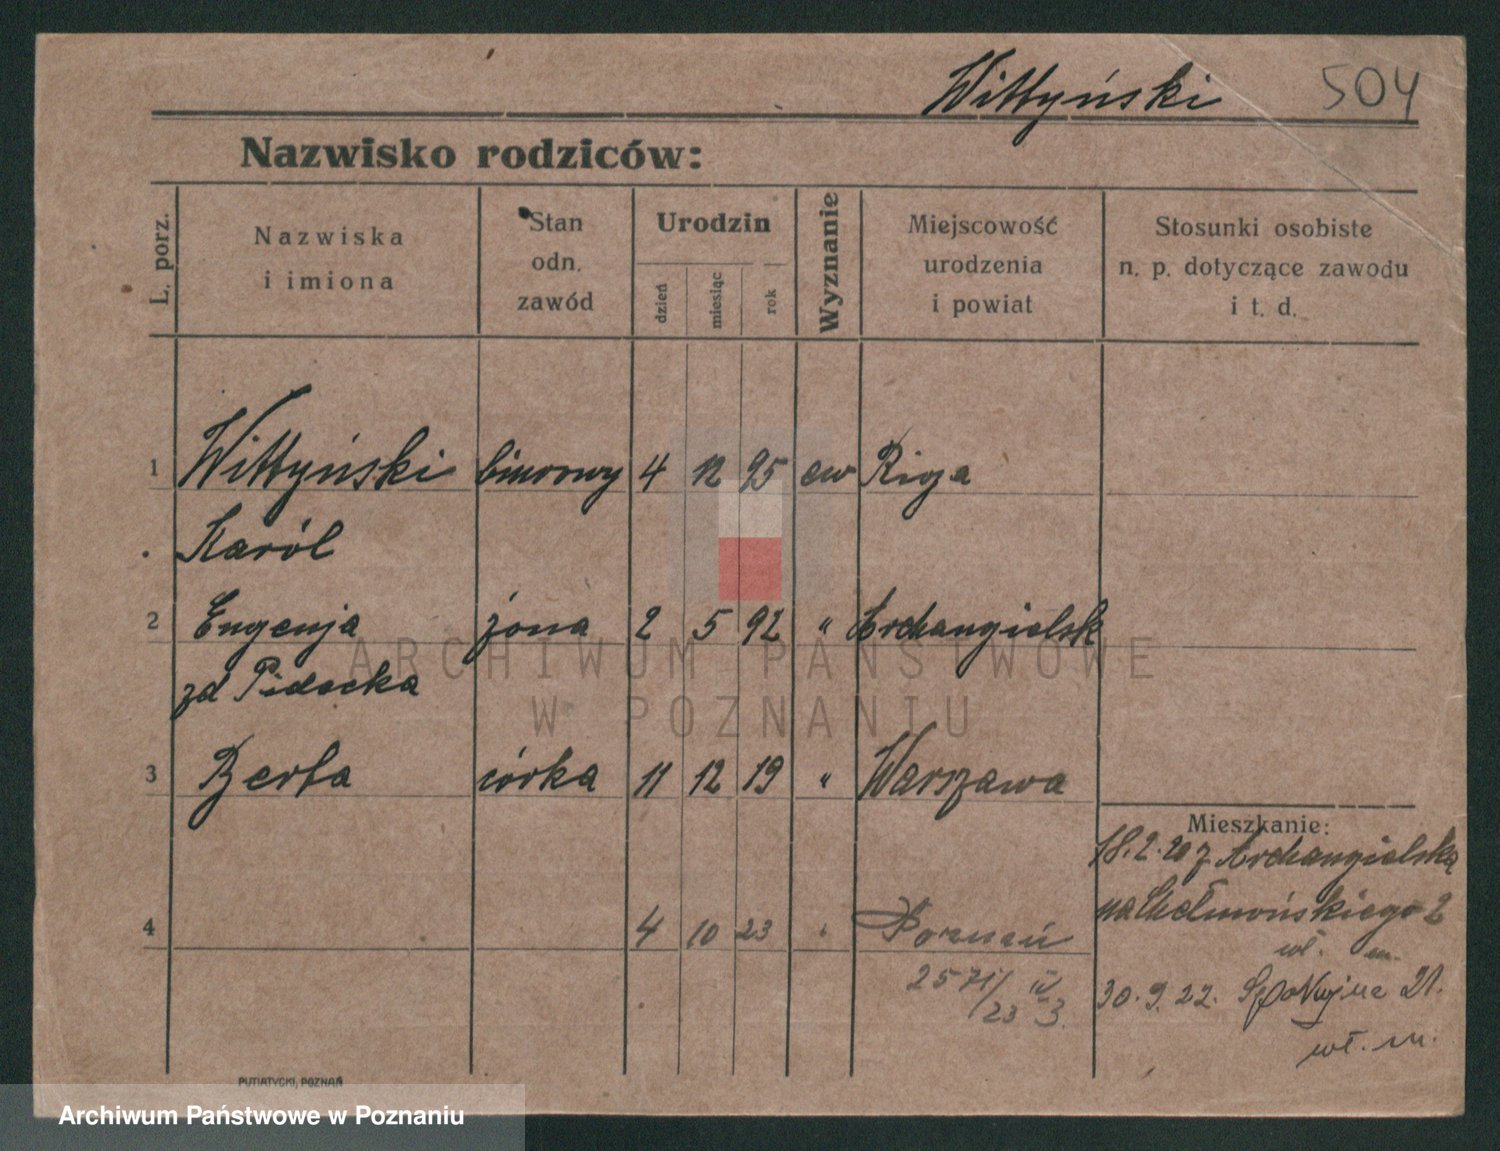 Wittyński 504
Nazwisko rodziców:
L. porz.
Nazwiska
i imiona
Stan
odn.
zawód
Urodzin
dzień
miesiąc
rok
Wyznanie
Miejscowość
urodzenia
i powiat
Stosunki osobiste
n. p. dotyczące zawodu
i t. d.
1 Wittyński biurowy 4 12 95 ew Riga
Karól
2 Eugenja żona 2 5 92 " Archangielsk
zd Pidecka
3 Berta córka 11 12 19 " Warszawa
Mieszkanie:
18.2.20 z Archangielska
na Chełmońskiego 2
wł. m.
4 4 10 23 " Poznań
2571/23 IV 3.
30.9.22. Spokojna 21.
wł. m.
PUTIATYCKI, POZNAŃ
ARCHIWUM PAŃSTWOWE
W POZNANIU
Archiwum Państwowe w Poznaniu